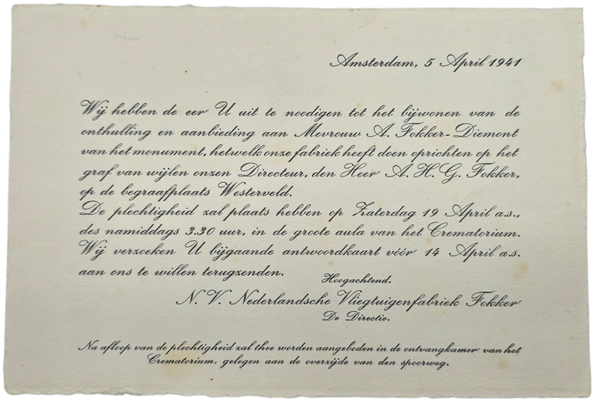 Amsterdam, 5 April 1941
Wij hebben de eer U uit te noodigen tot het bijwonen van de
onthulling en aanbieding aan Mevrouw A. Fokker-Diemont
van het monument, hetwelk onze fabriek heeft doen oprichten op het
graf van wijlen onzen Directeur, den Heer A. H. G. Fokker,
op de begraafplaats Westerveld.
De plechtigheid zal plaats hebben op Zaterdag 19 April a.s.,
des namiddags 3.30 uur, in de groote aula van het Crematorium.
Wij verzoeken U bijgaande antwoordkaart vóór 14 April a.s.
aan ons te willen terugzenden.
Hoogachtend,
N. V. Nederlandsche Vliegtuigenfabriek Fokker
De Directie.
Na afloop van de plechtigheid zal thee worden aangeboden in de ontvangkamer van het
Crematorium, gelegen aan de overzijde van den spoorweg.